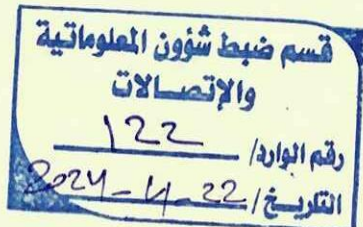 قسم ضبط شؤون المعلوماتية
والإتصالات
رقم الوارد/ 122
التاريخ/ 2024-4-22